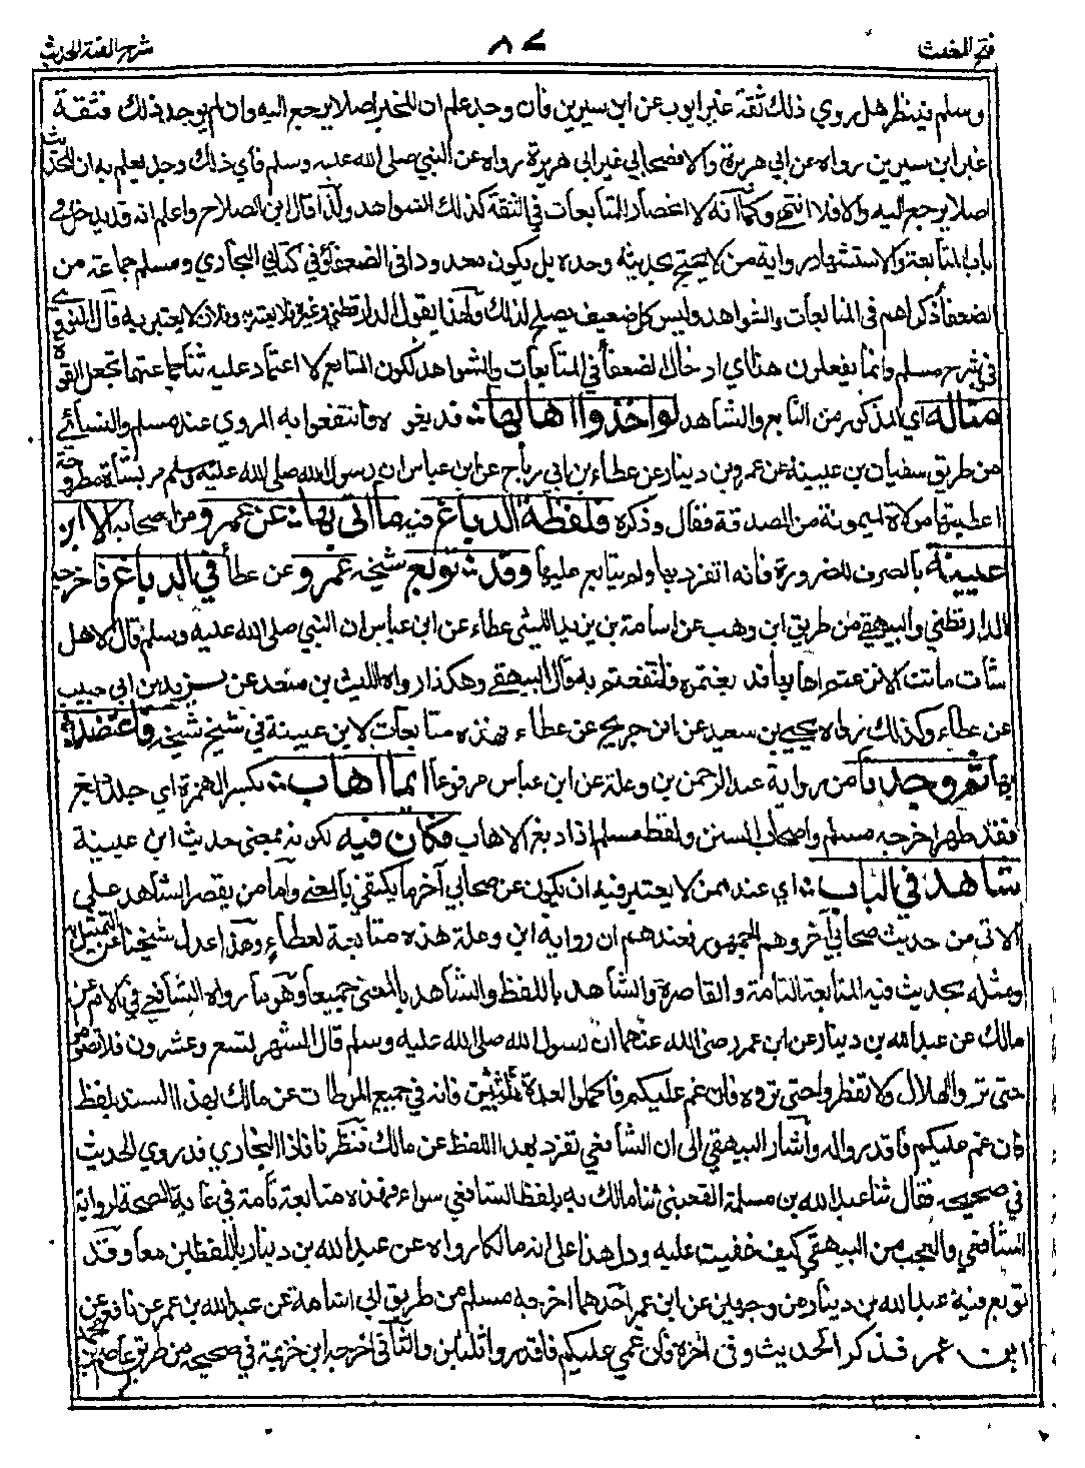 فتح المغيث
٨٧
شرح الفية الحديث
وسلم فينظر هل روي ذلك ثقة غير ايوب عن ابن سيرين فان وجد علم ان للخبر اصلا يرجع اليه وان لم يوجد ذلك فثقة
غير ابن سيرين رواه عن ابي هريرة والا فصحابي غير ابي هريرة رواه عن النبي صلى الله عليه وسلم فاي ذلك وجد يعلم به ان للحديث
اصلا يرجع اليه والا فلا انتهى وكما انه لا انحصار للمتابعات في الثقة كذلك الشواهد ولذا قال ابن الصلاح واعلم انه قد يدخل في
باب المتابعة والاستشهاد رواية من لا يحتج بحديثه وحده بل يكون معدودا في الضعفاء وفي كتابي البخاري ومسلم جماعة من
الضعفاء ذكراهم في المتابعات والشواهد وليس كل ضعيف يصلح لذلك ولهذا يقول الدارقطني وغيره فلان يعتبر به وفلان لا يعتبر به قال النووي
في شرح مسلم وانما يفعلون هذا اي ادخال الضعفاء في المتابعات والشواهد لكون المتابع لا اعتماد عليه
مثاله اي المذكور من التابع والشاهد لو اخذوا اهابها قد بغوه فانتفعوا به المروي عند مسلم والنسائي
من طريق سفيان بن عيينة عن عمرو بن دينار عن عطاء بن ابي رباح عن ابن عباس ان رسول الله صلى الله عليه وسلم مر بشاة مطروحة
اعطيتها مولاة لميمونة من الصدقة فقال وذكره فلفظة الدباغ فيه ما اتى بها عن عمرو من اصحابه الا ابن
عيينة بالصرف للضرورة فانه انفرد بها ولم يتابع عليها وقد توبع شيخه عمرو عن عطاء في الدباغ فاخرجه
الدارقطني والبيهقي من طريق ابن وهب عن اسامة بن زيد الليثي عن عطاء عن ابن عباس ان النبي صلى الله عليه وسلم قال لاهل
شاة ماتت الا نزعتم اهابها فدبغتموه فانتفعتم به قال البيهقي وهكذا رواه الليث بن سعد عن يزيد بن ابي حبيب
عن عطاء وكذلك رواه يحيى بن سعيد عن ابن جريج عن عطاء فهذه متابعات لابن عيينة في شيخ شيخه فاعتضد
بها ثم وجدنا من رواية عبد الرحمن بن وعلة عن ابن عباس مرفوعا ايما اهاب بكسر الهمزة اي جلد دبغ
فقد طهر اخرجه مسلم واصحاب السنن ولفظ مسلم اذا دبغ الاهاب فكان فيه لكونه بمعنى حديث ابن عيينة
شاهد في الباب اي عند من لا يعتبر فيه ان يكون عن صحابي آخر ما يكتفي بالمعنى واما من يقصر الشاهد على
الاتي من حديث صحابي آخر وهم الجمهور فعندهم ان رواية ابن وعلة هذه متابعة لعطاء ولهذا عدل شيخنا عن التمثيل به
ومثله بحديث فيه المتابعة التامة والقاصرة والشاهد باللفظ والشاهد بالمعنى جميعا وهو ما رواه الشافعي في الام عن
مالك عن عبد الله بن دينار عن ابن عمر رضي الله عنهما ان رسول الله صلى الله عليه وسلم قال الشهر تسع وعشرون فلا تصوموا
حتى تروا الهلال ولا تفطروا حتى تروه فان غم عليكم فاكملوا العدة ثلاثين فانه في جميع الموطآت عن مالك بهذا السند بلفظ
فان غم عليكم فاقدروا له واشار البيهقي الى ان الشافعي تفرد بهذا اللفظ عن مالك فنظرنا فاذا البخاري قد روى الحديث
في صحيحه فقال ثنا عبد الله بن مسلمة القعنبي ثنا مالك به بلفظ الشافعي سواء فهذه متابعة تامة في غاية الصحة لرواية
الشافعي والعجب من البيهقي كيف خفيت عليه ودل هذا على ان مالكا رواه عن عبد الله بن دينار باللفظين معا وقد
توبع فيه عبد الله بن دينار من وجهين عن ابن عمر احدهما اخرجه مسلم من طريق ابي اسامة عن عبيد الله بن عمر عن نافع عن
ابن عمر فذكر الحديث وفي آخره فان غمي عليكم فاقدروا ثلثين والثاني اخرجه ابن خزيمة في صحيحه من طريق عاصم بن محمد